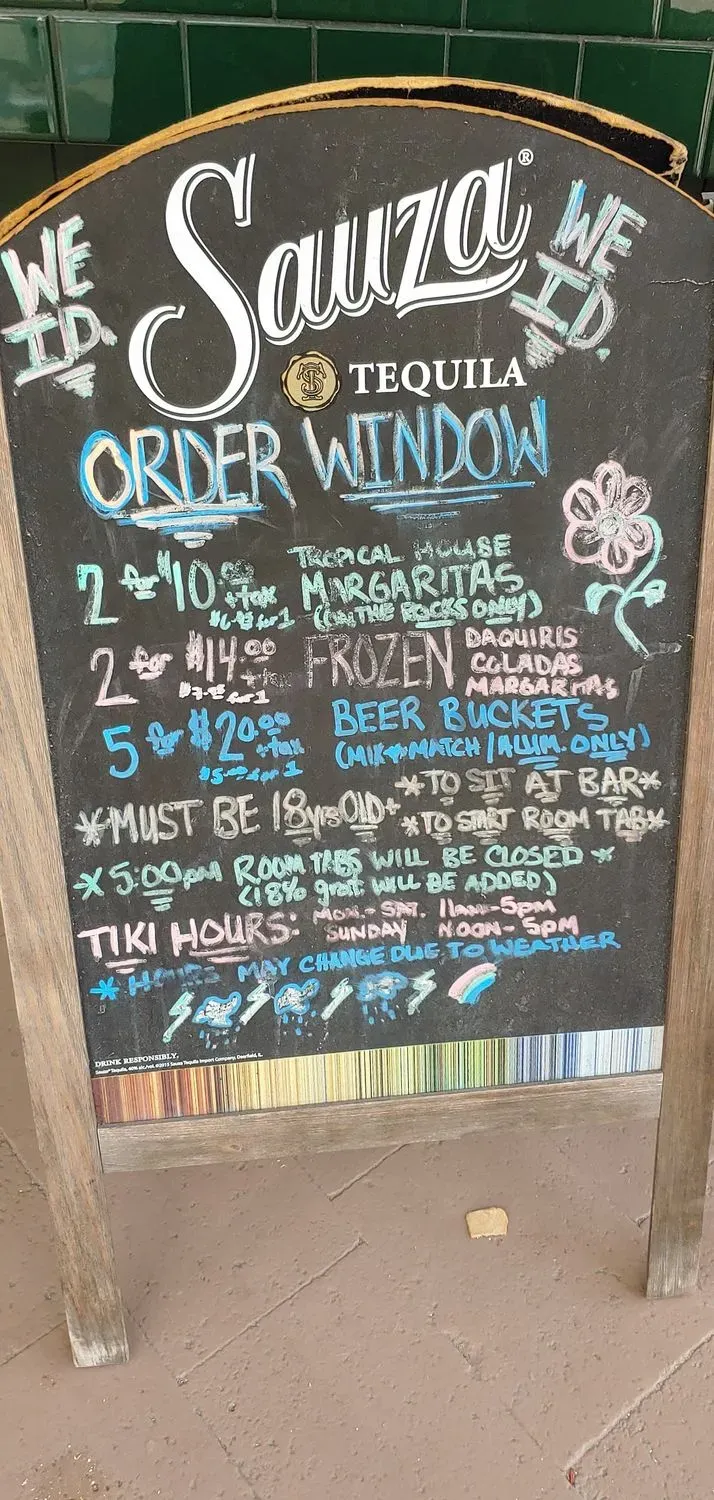 WE
I.D.
Sauza®
WE
I.D.
TEQUILA
ORDER WINDOW
2 for $10.00 + tax
TROPICAL HOUSE
MARGARITAS
(ON THE ROCKS ONLY)
for 1
2 for $14.00 + tax
for 1
FROZEN
DAQUIRIS
COLADAS
MARGARITAS
5 for $20.00 + tax
$5.00 for 1
BEER BUCKETS
(MIX + MATCH / ALUM. ONLY)
*MUST BE 18 yrs OLD+
*TO SIT AT BAR*
*TO START ROOM TAB*
* 5:00pm ROOM TABS WILL BE CLOSED *
(18% grat WILL BE ADDED)
TIKI HOURS:
MON.-SAT. 11am-5pm
SUNDAY NOON-5PM
* HOURS MAY CHANGE DUE TO WEATHER
DRINK RESPONSIBLY.
Sauza® Tequila, 40% alc./vol. ©2013 Sauza Tequila Import Company, Deerfield, IL.